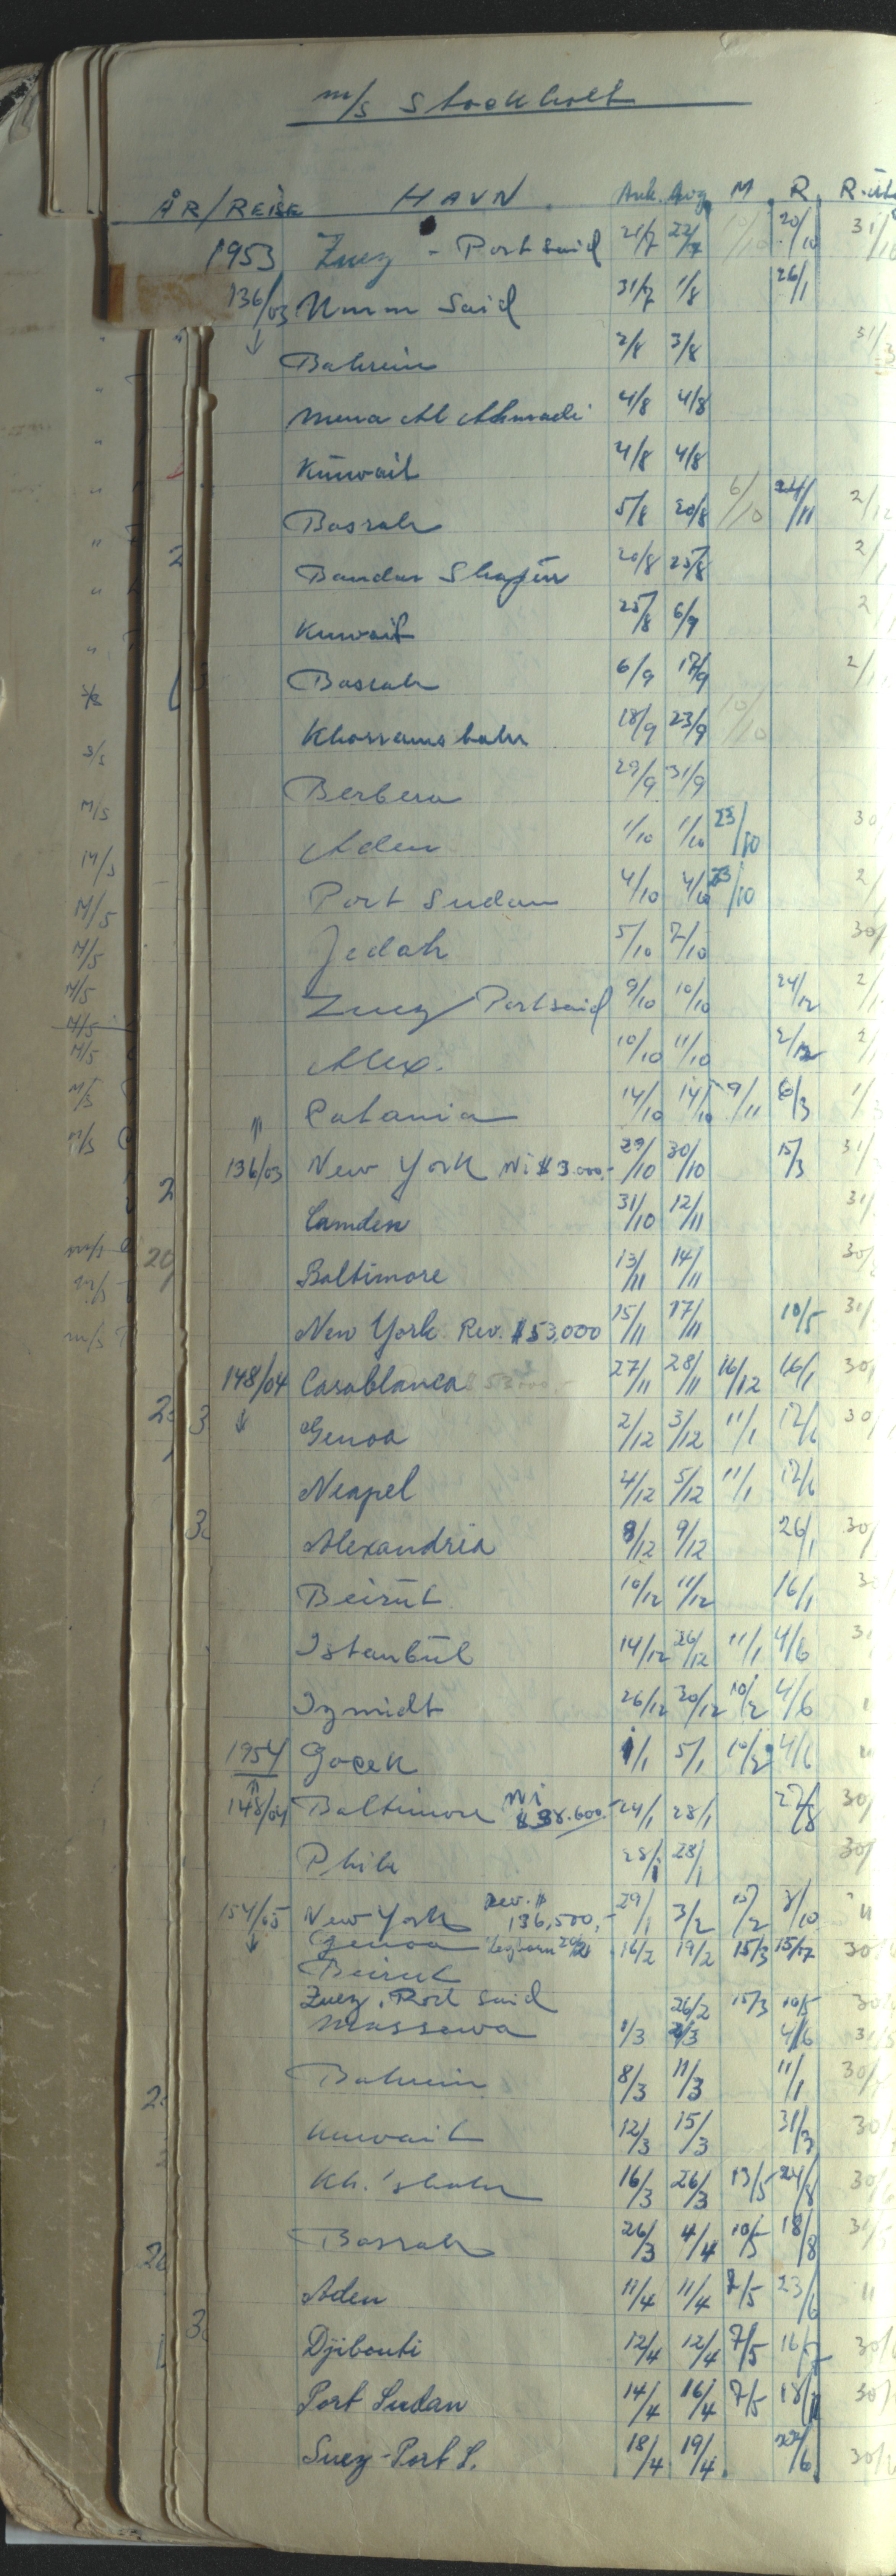 m/s Stockholt
ÅR/REISE HAVN Ank. Avg. M. R.
1953 Zuez - Port said 21/7 22/7 20/10 31/10
136/03 Umm Said 31/7 1/8 26/1
Bahrein 2/8 3/8
Mena Al Ahmadi 4/8 4/8
Kuwait 4/8 4/8
Basrah 5/8 20/8 6/10 24/11
Bandar Shapur 20/8 25/8
Kuwait 25/8 6/9
Basrah 6/9 17/9
Khorramshahr 18/9 23/9 10/10
Berbera 29/9 31/9
Aden 1/10 1/10 23/10 30
Port Sudan 4/10 4/10 23/10
Jedah 5/10 7/10 30/
Zuez Port said 9/10 10/10 24/12
Alex. 10/10 11/10 2/12
Catania 14/10 14/10 9/11 6/3
136/03 New York Ni $ 3.000,- 29/10 30/10 15/3 31/
Camden 31/10 12/11 31/
Baltimore 13/11 14/11 30/
New York Rev. $ 53,000 15/11 17/11 10/5 31/
148/04 Casablanca 27/11 28/11 16/12 16/1 30/
Genoa 2/12 3/12 11/1 17/6 30/
Neapel 4/12 5/12 11/1 17/6
Alexandria 8/12 9/12 26/1 30/
Beirut 10/12 11/12 16/1
Istanbul 14/12 26/12 11/1 4/6
Izmidt 26/12 30/12 10/2 4/6
1954 Gocek 1/1 5/1 10/2 4/6 "
148/04 Baltimore Ni $ 38.600.- 24/1 28/1 27/8 30/
Phila 28/1 28/1 30/
154/05 New York Rev. $ 136,500,- 29/1 3/2 15/2 8/10 "
Genoa Leghorn 20/2 16/2 19/2 15/3 15/7 30/
Beirut
Zuez, Port Said 26/2 15/3 10/5
Massawa 1/3 2/3 4/6
Bahrein 8/3 11/3 11/1 30/
Kuwait 12/3 15/3 31/3 30
Kh.'shahr 16/3 26/3 13/5 24/8 30/
Basrah 26/3 4/4 10/5 18/8 31/
Aden 11/4 11/4 7/5 23/6 "
Djibouti 12/4 12/4 7/5 16/7 30/
Port Sudan 14/4 16/4 7/5 30/
Suez - Port S. 18/4 19/4 22/6 30/